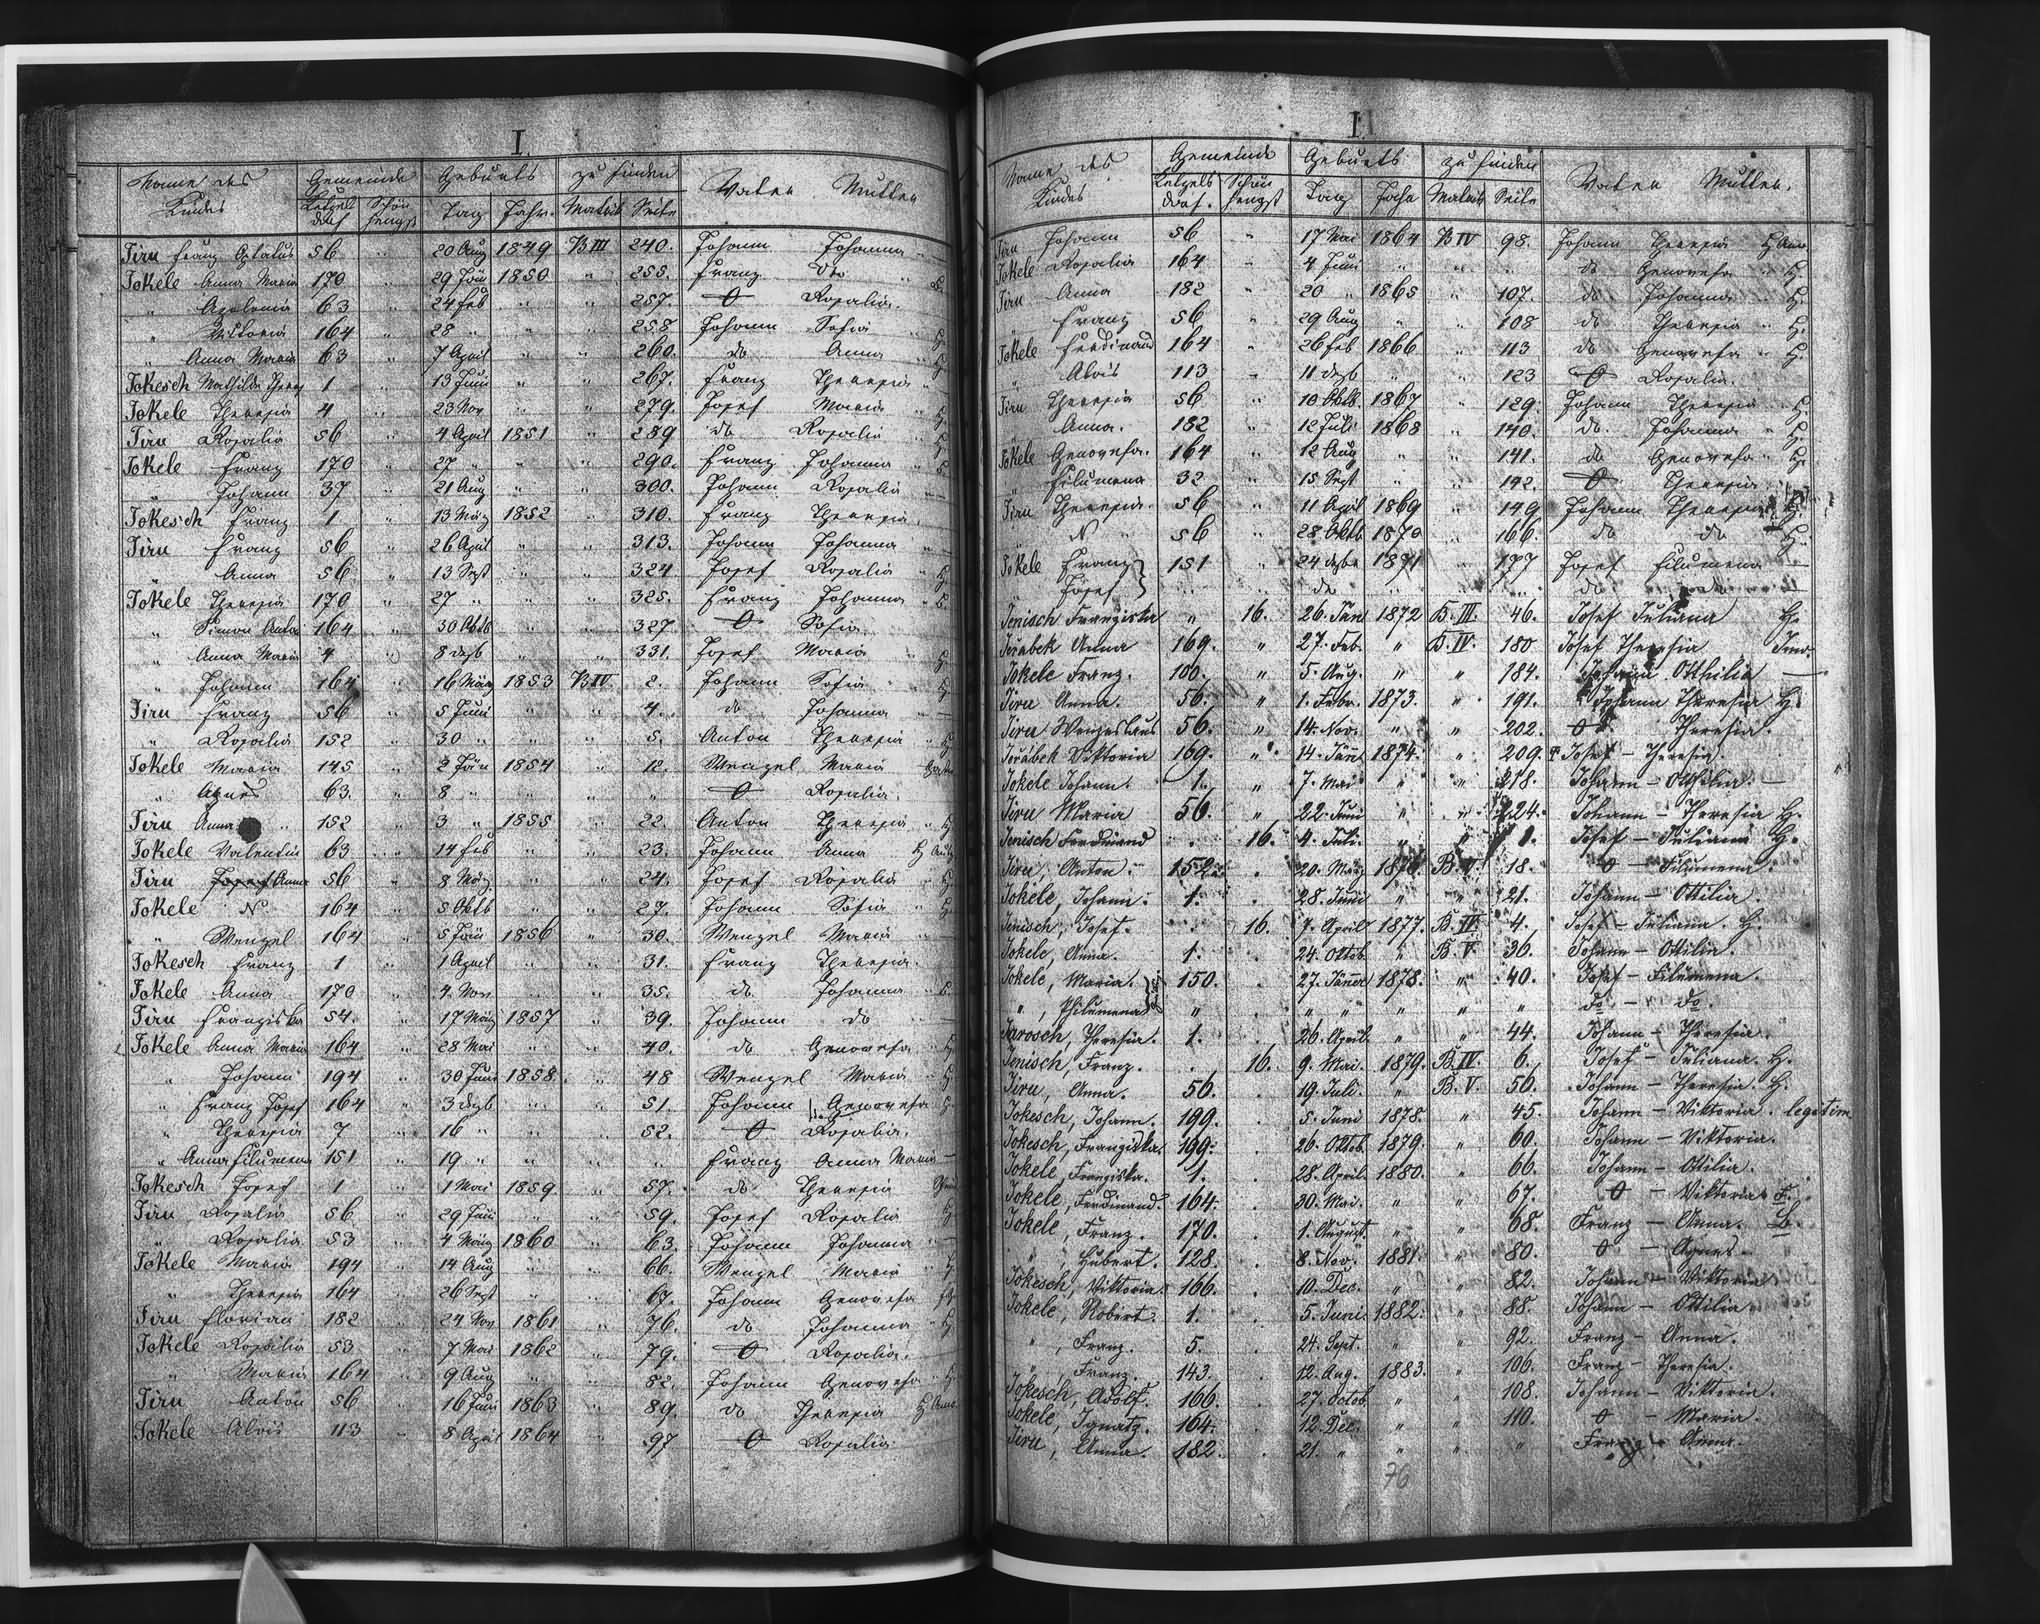 I.
Name des Kindes Gemeinde Geburts zu finden Vater Mutter
Ketzelsdorf Schönhengst Tag Jahr Matrik Seite
Jiru Franz Optatus 56 " 20 Aug 1849 B III 240. Johann Johanna
Jokele Anna Maria 170 " 29 Jän 1850 " 255. Franz do
" Apolonia 63 " 24 Feb " " 257. O Rosalia.
" Viktoria 164 " 28 " " " 258 Johann Sofia
" Anna Maria 63 " 7 April " " 260. do Anna
Jokesch Mathilda Theres 1 " 13 Juni " " 267. Franz Theresia
Jokele Theresia 4 " 23 Nov " " 279. Josef Maria
Jiru Rosalia 56 " 4 April 1851 " 289 do Rosalia
Jokele Franz 170 " 27 " " " 290. Franz Johanna
" Johann 37 " 21 Aug " " 300. Johann Rosalia
Jokesch Franz 1 " 13 März 1852 " 310. Franz Theresia.
Jiru Franz 56 " 26 April " " 313. Johann Johanna
" Anna 56 " 13 Sept " " 324 Josef Rosalia
Jokele Theresia 170 " 27 " " " 325. Franz Johanna
" Simon Anton 164 " 30 Oktb " " 327 O Sofia
" Anna Maria 4 " 8 dezb " " 331. Josef Maria
" Johann 164 " 16 März 1853 B IV. 2. Johann Sofia
Jiru Franz 56 " 5 Juni " " 4. do Johanna
" Rosalia 152 " 30 " " " 5. Anton Theresia
Jokele Maria 145 " 2 Jän 1854 " 12. Wenzel Maria
" Agnes 63. " 8 " " " " O Rosalia.
Jiru Anna 152 " 3 " 1855 " 22. Anton Theresia
Jokele Valentin 63 " 14 Feb " " 23. Johann Anna
Jiru Josef Anna 56 " 8 März " " 24. Josef Rosalia
Jokele N 164 " 5 Oktb " " 27. Johann Sofia
" Wenzel 164 " 5 Jän 1856 " 30. Wenzel Maria
Jokesch Franz 1 " 1 April " " 31. Franz Theresia.
Jokele Anna 170 " 4. Nov " " 35. do Johanna
Jiru Franziska 54. " 17 März 1857 " 39. Johann do
Jokele Anna Maria 164 " 28 Mai " " 40. do Genovefa
" Johann 194 " 30 Juni 1858. " 48 Wenzel Maria
" Franz Josef 164 " 3 dezb " " 51. Johann Genovefa
" Theresia 7 " 16 " " " 52. O Rosalia.
" Anna Filumena 151 " 19 " " " " Franz Anna Maria
Jokesch Josef 1 " 1 Mai 1859 " 57. do Theresia
Jiru Rosalia 56 " 29 Juni " " 59. Josef Rosalia
" Rosalia 53 " 4 März 1860 " 63. Johann Johanna
Jokele Maria 194 " 14 Aug " " 66. Wenzel Maria
" Theresia 164 " 26 Sept " " 67. Johann Genovefa
Jiru Florian 182 " 24 Nov 1861 " 76. do Johanna
Jokele Rosalia 53 " 7 Mai 1862 " 79. O Rosalia.
" Maria 164 " 9 Aug " " 82. Johann Genovefa
Jiru Anton 56 " 16 Juni 1863 " 89. do Theresia
Jokele Alois 113 " 8 April 1864 " 97 O Rosalia
I
Name des Kindes Gemeinde Geburts zu finden Vater Mutter.
Ketzelsdorf. Schönhengst Tag Jahr Matrik Seite
Jiru Johann 56 " 17 Mai 1864 B IV 98. Johann Theresia H
Jokele Rosalia 164 " 4 Juni " " " do Genovefa " H.
Jiru Anna 182 " 20 " 1865 " 107. do Johanna " H.
" Franz 56 " 29 Aug " " 108 do Theresia " H.
Jokele Ferdinand 164 " 26 Feb 1866 " 113 do Genovefa " H.
" Alois 113 " 11 dezb " " 123 O Rosalia.
Jiru Theresia 56 " 10 Oktb. 1867 " 129. Johann Theresia " H.
" Anna. 182 " 12 Juli 1868 " 140. do Johanna " H
Jokele Genovefa. 164 " 12 Aug " " 141. do Genovefa " H.
" Filumena 32 " 15 Sept " " 142. O Theresia
Jiru Theresia. 56 " 11 April 1869 " 149 Johann Theresia H.
" N 56 " 28 Oktb 1870 " 166. do do H.
Jokele Franz } 151 " 24 dezbr 1871 " 177 Josef Filumena —
" Josef } do do
Jenisch Franziska " 16. 26. Jän 1872 B. III. 46. Josef Juliana H.
Jeřabek Anna 169. " 27. Feb. " B. IV. 180 Josef Theresia
Jokele Franz. 100. " 5. Aug. " " 184. Johann Otthilia —
Jiru Anna. 56. " 1. Febr. 1873. " 191. Johann Theresia H.
Jiru Wenzeslaus 56. " 14. Nov. " " 202. O Theresia.
Jeřábek Viktoria 169. " 14. Jänn 1874. " 209. Josef – Theresia
Jokele Johann. 1. " 7. Mai " " 218. Johann – Otthilia. —
Jiru Maria 56. " 22. Juni " " 224. Johann – Theresia H.
Jenisch Ferdinand . 16. 4. Juli. " " 1. Josef – Juliana H.
Jiru, Anton. 152. . 20. März 1876. B. V. 18. O – Filumena.
Jokele, Johann. 1. . 28. Juni " " 21. Johann – Ottilia.
Jenisch, Josef. . 16. 7. April 1877. B. IV. 4. Josef – Juliana. H.
Jokele, Anna. 1. . 24. Oktob. " B. V. 36. Johann – Ottilia.
Jokele, Maria. } 150. . 27. Jänner 1878. " 40. Josef – Filumena.
" , Philumena } " " " " " " do – do.
Jarosch, Theresia. 1. . 26. April. " " 44. Johann – Theresia.
Jenisch, Franz. . 16. 9. Mai. 1879. B. IV. 6. Josef – Juliana. H.
Jiru, Anna. 56. . 19. Juli. " B. V. 56. Johann – Theresia. H.
Jokesch, Johann. 199. . 5. Juni 1878. " 45. Johann – Viktoria. legitim
Jokesch, Franziska. 199. . 26. Oktob. 1879. " 60. Johann – Viktoria.
Jokele, Franziska. 1. . 28. April. 1880. " 66. Johann – Ottilia.
Jokele, Ferdinand. 164. . 30. Mai. " " 67. O – Viktoria
Jokele, Franz. 170. . 1. August. " " 68. Franz – Anna. L.
" , Hubert. 128. . 8. Nov. 1881. " 80. O – Agnes.
Jokesch, Viktoria. 166. . 10. Dec. " " 82. Johann – Viktoria
Jokele, Robert. 1. . 5. Juni. 1882. " 88. Johann – Ottilia
" , Franz. 5. . 24. Sept. " " 92. Franz – Anna.
" , Franz. 143. . 12. Aug. 1883. " 106. Franz – Theresia.
Jokesch, Adolf. 166. . 27. Octob. " " 108. Johann – Viktoria.
Jokele, Ignatz. 164. . 12. Dec. " " 110. O – Maria.
Jiru, Anna. 182. . 21. " " " " Anna.
76